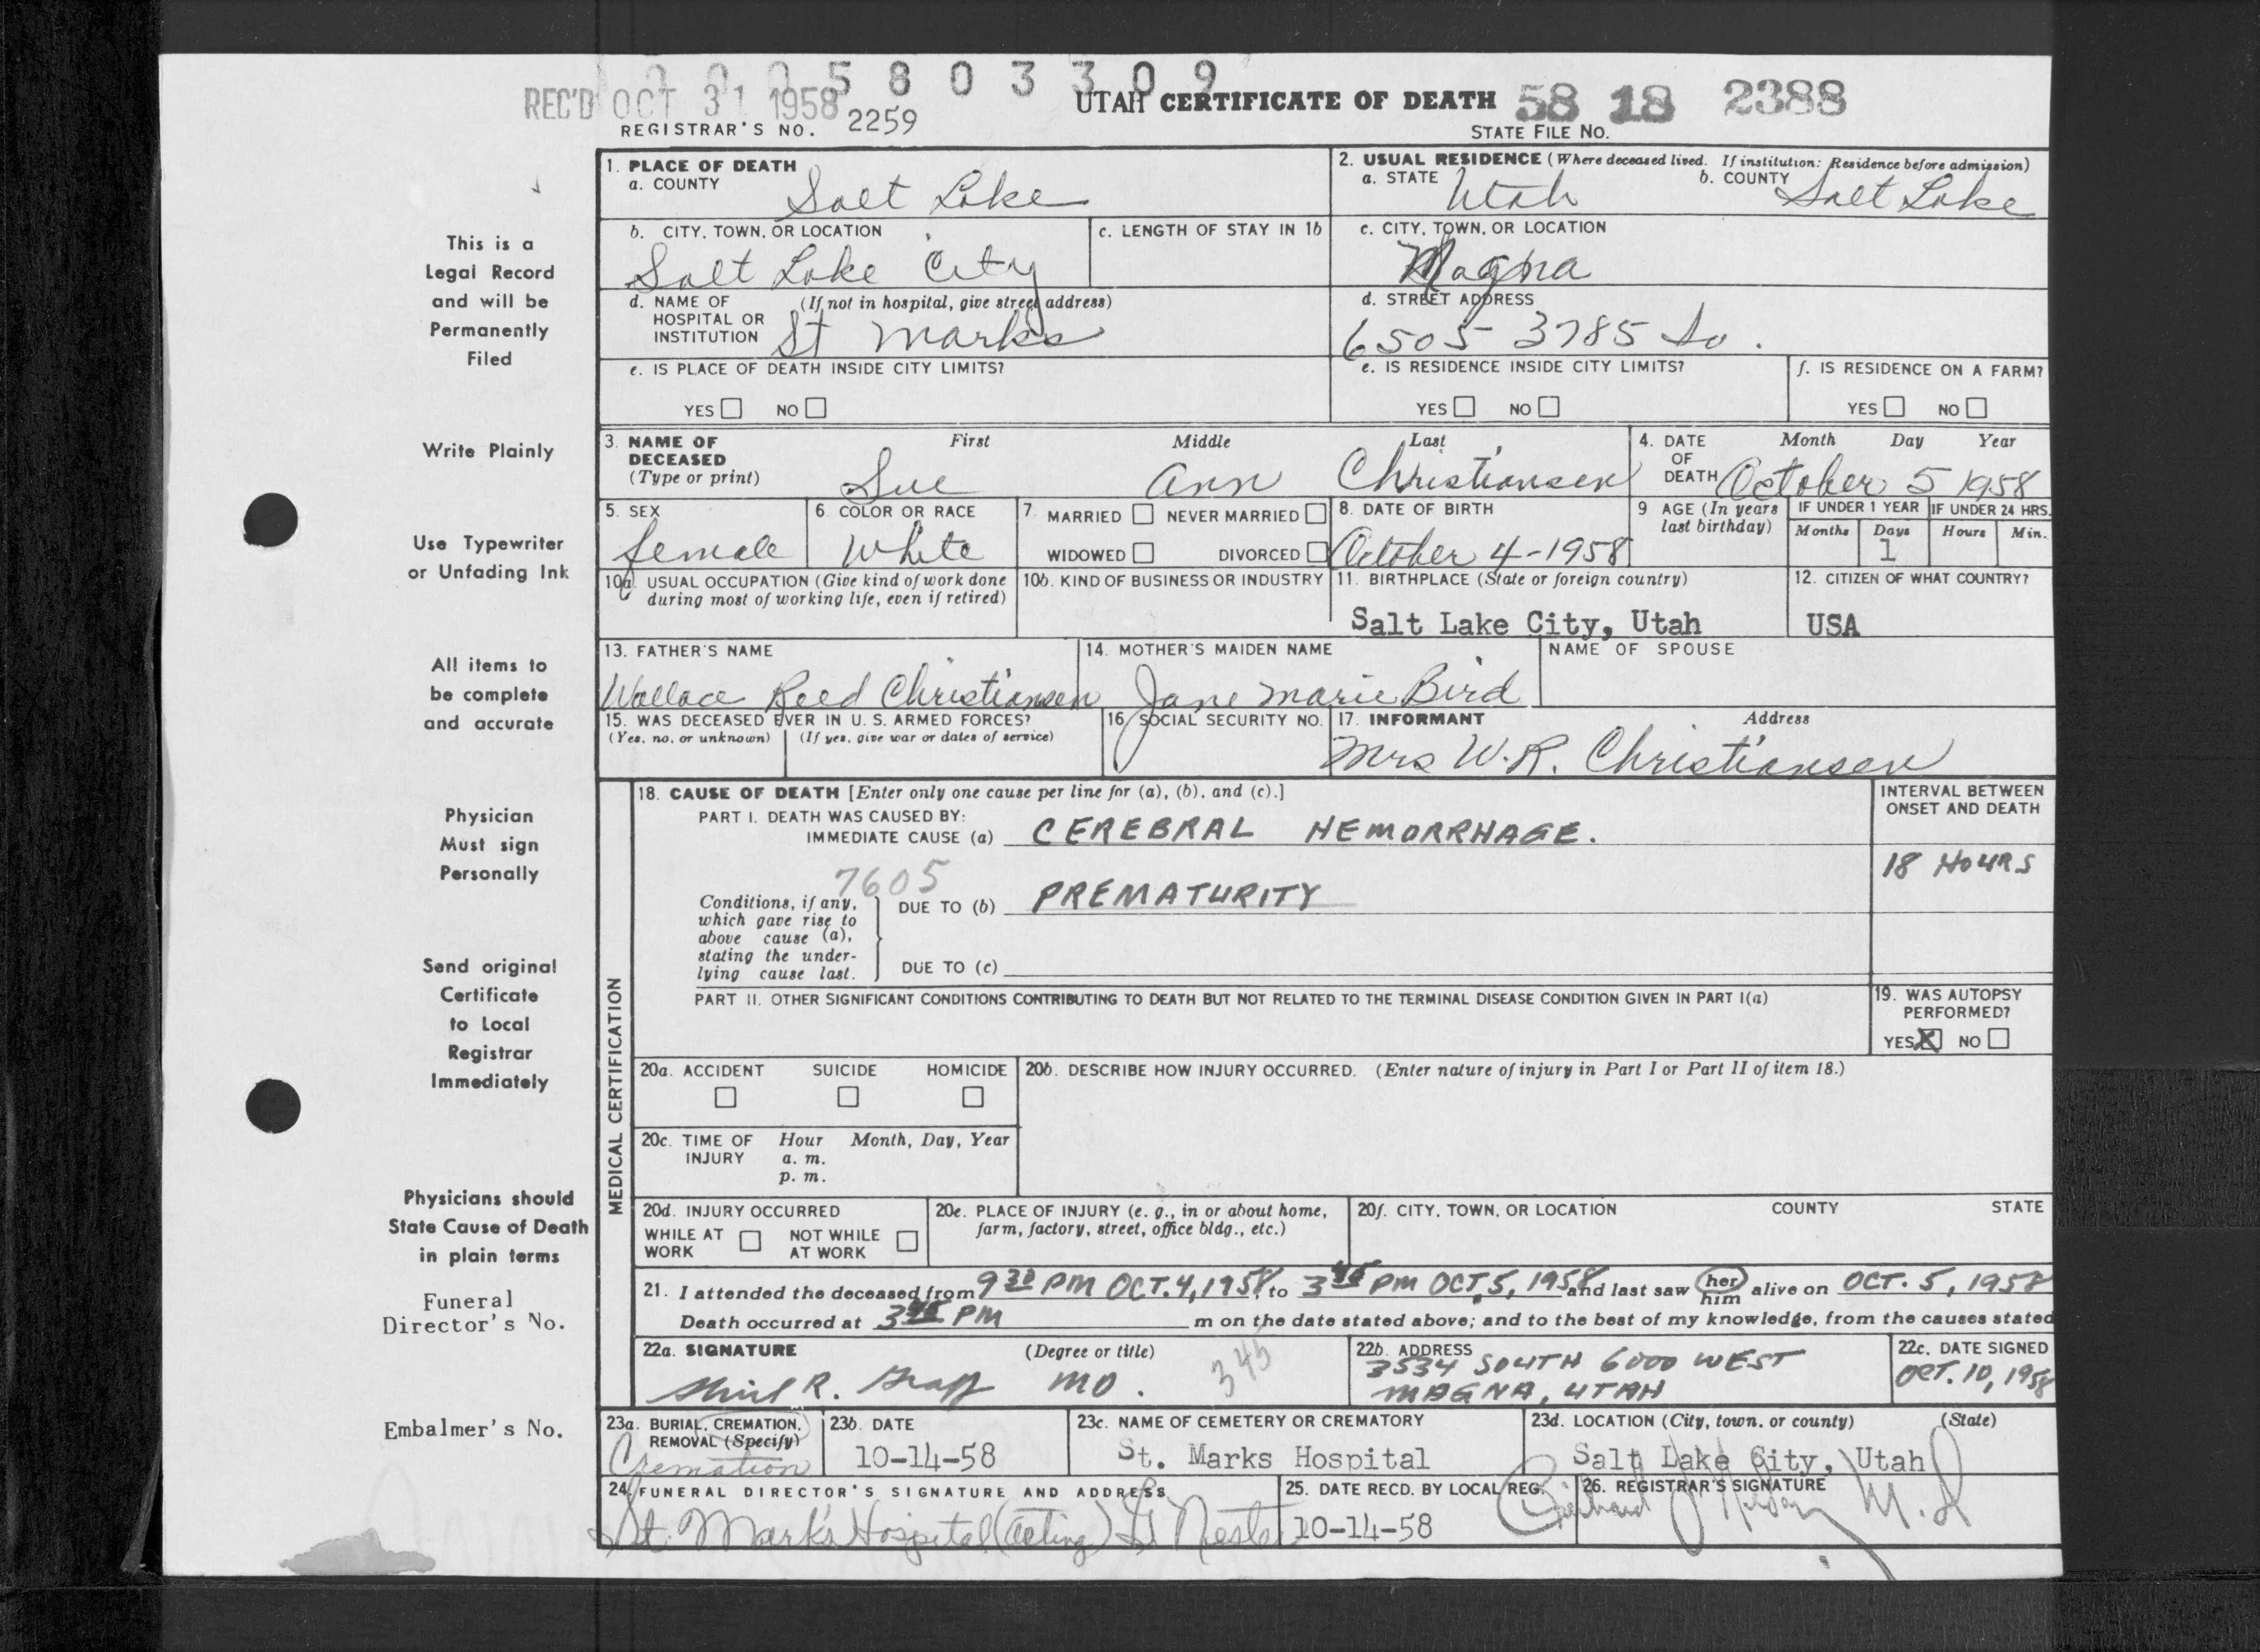 0 0 0 5 8 0 3 3 0 9
REC'D OCT 31 1958
UTAH CERTIFICATE OF DEATH 58 18 2388
REGISTRAR'S NO. 2259
STATE FILE No.
This is a
Legal Record
and will be
Permanently
Filed
Write Plainly
Use Typewriter
or Unfading Ink
All items to
be complete
and accurate
Physician
Must sign
Personally
Send original
Certificate
to Local
Registrar
Immediately
Physicians should
State Cause of Death
in plain terms
Funeral
Director's No.
Embalmer's No.
1. PLACE OF DEATH
a. COUNTY Salt Lake
2. USUAL RESIDENCE (Where deceased lived. If institution: Residence before admission)
a. STATE Utah b. COUNTY Salt Lake
b. CITY, TOWN, OR LOCATION
Salt Lake City
c. LENGTH OF STAY IN 1b
c. CITY, TOWN, OR LOCATION
Magna
d. NAME OF (If not in hospital, give street address)
HOSPITAL OR
INSTITUTION St Marks
d. STREET ADDRESS
6505 3785 So.
e. IS PLACE OF DEATH INSIDE CITY LIMITS?
YES NO
e. IS RESIDENCE INSIDE CITY LIMITS?
YES NO
f. IS RESIDENCE ON A FARM?
YES NO
3. NAME OF First Middle Last
DECEASED
(Type or print) Sue Ann Christiansen
4. DATE Month Day Year
OF
DEATH October 5 1958
5. SEX
female
6. COLOR OR RACE
White
7. MARRIED NEVER MARRIED
WIDOWED DIVORCED
8. DATE OF BIRTH
October 4-1958
9 AGE (In years
last birthday)
IF UNDER 1 YEAR IF UNDER 24 HRS.
Months Days Hours Min.
1
10a. USUAL OCCUPATION (Give kind of work done
during most of working life, even if retired)
10b. KIND OF BUSINESS OR INDUSTRY
11. BIRTHPLACE (State or foreign country)
Salt Lake City, Utah
12. CITIZEN OF WHAT COUNTRY?
USA
13. FATHER'S NAME
Wallace Reed Christiansen
14. MOTHER'S MAIDEN NAME
Jane Marie Bird
NAME OF SPOUSE
15. WAS DECEASED EVER IN U. S. ARMED FORCES?
(Yes, no, or unknown) (If yes, give war or dates of service)
16. SOCIAL SECURITY NO.
17. INFORMANT Address
Mrs W. R. Christiansen
MEDICAL CERTIFICATION
18. CAUSE OF DEATH [Enter only one cause per line for (a), (b), and (c).]
INTERVAL BETWEEN
ONSET AND DEATH
PART I. DEATH WAS CAUSED BY:
IMMEDIATE CAUSE (a) CEREBRAL HEMORRHAGE.
18 HOURS
7605
Conditions, if any,
which gave rise to
above cause (a),
stating the under-
lying cause last.
DUE TO (b) PREMATURITY
DUE TO (c)
PART II. OTHER SIGNIFICANT CONDITIONS CONTRIBUTING TO DEATH BUT NOT RELATED TO THE TERMINAL DISEASE CONDITION GIVEN IN PART I(a)
19. WAS AUTOPSY
PERFORMED?
YES X NO
20a. ACCIDENT SUICIDE HOMICIDE
20b. DESCRIBE HOW INJURY OCCURRED. (Enter nature of injury in Part I or Part II of item 18.)
20c. TIME OF Hour Month, Day, Year
INJURY a. m.
p. m.
20d. INJURY OCCURRED
WHILE AT NOT WHILE
WORK AT WORK
20e. PLACE OF INJURY (e. g., in or about home,
farm, factory, street, office bldg., etc.)
20f. CITY, TOWN, OR LOCATION COUNTY STATE
21. I attended the deceased from 9 30 PM OCT. 4, 1958, to 3 45 PM OCT. 5, 1958 and last saw her him alive on OCT. 5, 1958
Death occurred at 3 45 PM m on the date stated above; and to the best of my knowledge, from the causes stated
22a. SIGNATURE (Degree or title)
R. Graff MD.
345
22b. ADDRESS
3534 SOUTH 6000 WEST
MAGNA, UTAH
22c. DATE SIGNED
OCT. 10, 1958
23a. BURIAL, CREMATION,
REMOVAL (Specify)
Cremation
23b. DATE
10-14-58
23c. NAME OF CEMETERY OR CREMATORY
St. Marks Hospital
23d. LOCATION (City, town, or county) (State)
Salt Lake City, Utah
24. FUNERAL DIRECTOR'S SIGNATURE AND ADDRESS
St. Mark's Hospital (Acting)
25. DATE RECD. BY LOCAL REG.
10-14-58
26. REGISTRAR'S SIGNATURE
M.D.